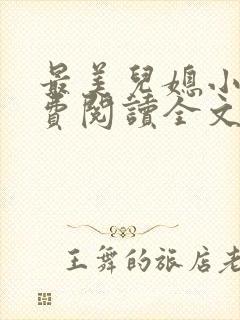 最美兒媳小
費閱讀全文
王舞的旅店老